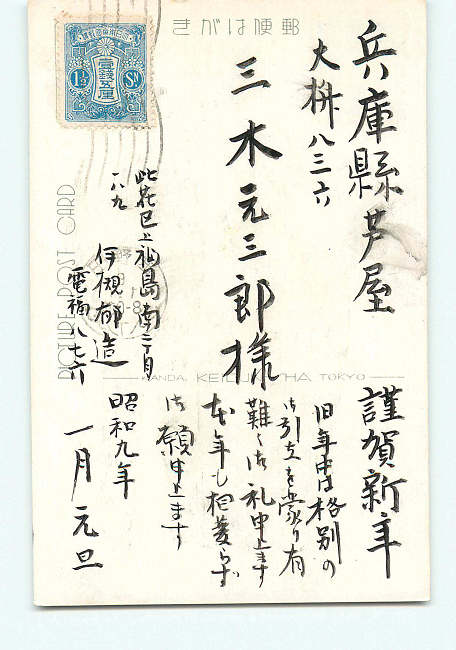 きがは便郵
兵庫縣芦屋
大桝八三六
三木元三郎様
此花区上福島南二丁目
八九
伊槻郁造
電福八七六
謹賀新年
旧年中は格別の
御引立を蒙り有
難く御礼申上ます
本年も相変らず
御願申上ます
昭和九年
一月元旦
1½ Sn
PICTURE POST CARD
KANDA.
TOKYO